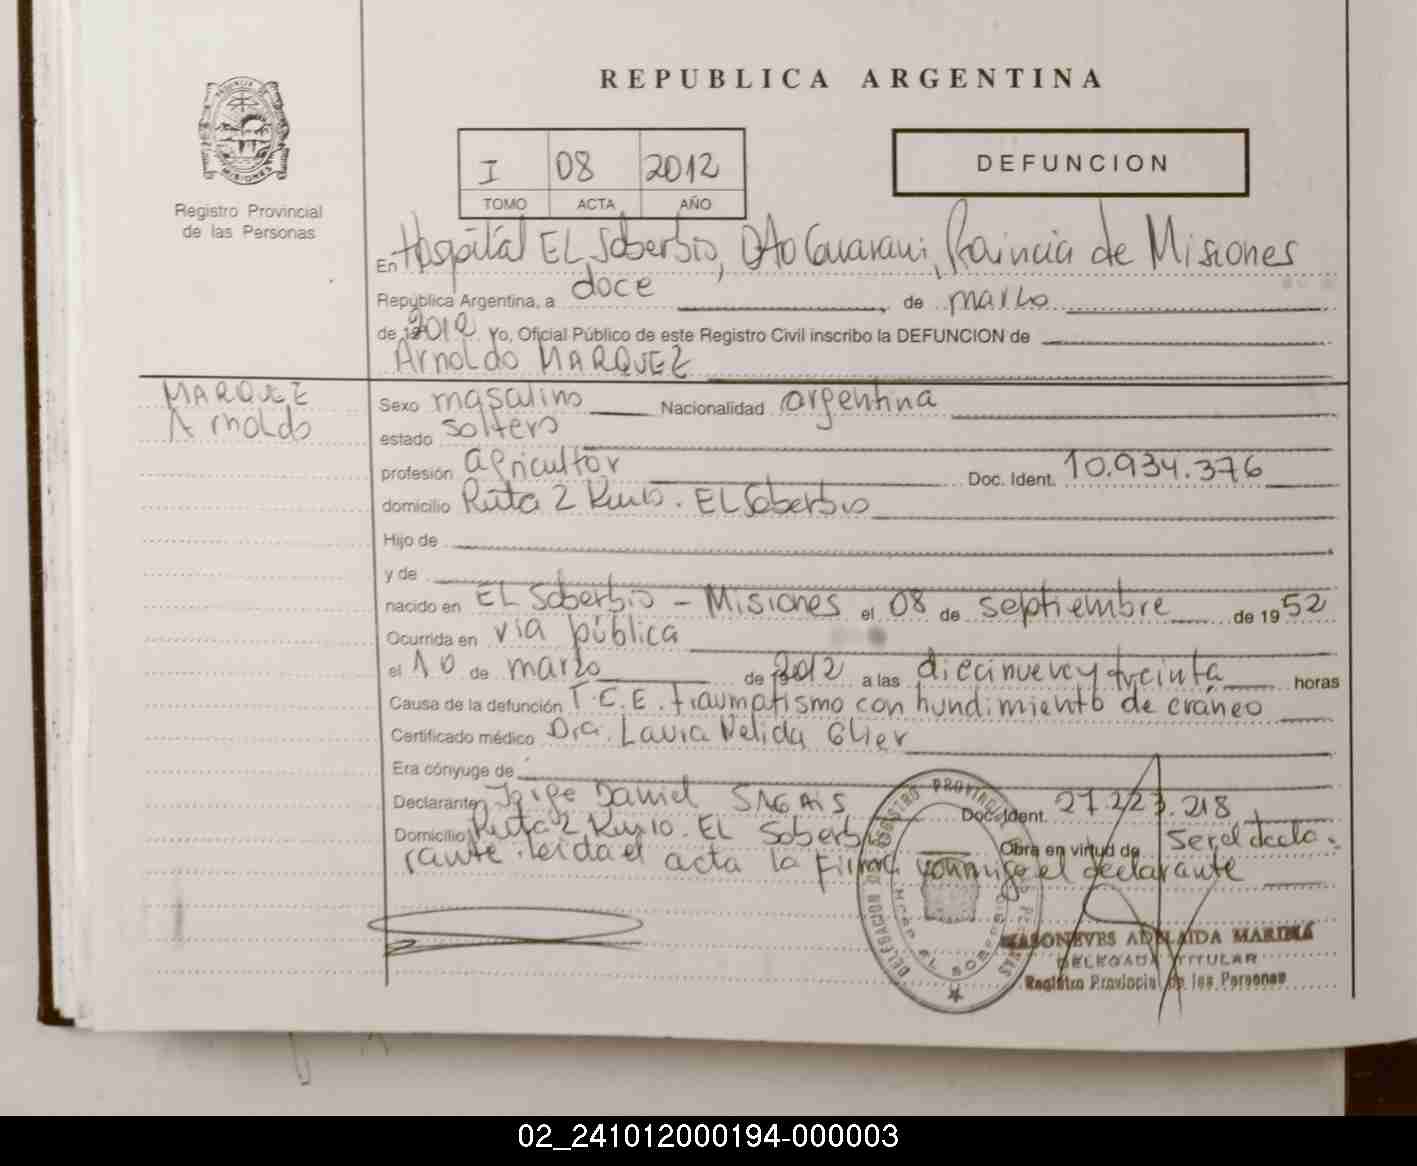 REPUBLICA ARGENTINA
I 08 2012
TOMO ACTA AÑO
DEFUNCION
Registro Provincial
de las Personas
En Hospital EL Soberbio, Dto Guarani, Provincia de Misiones
República Argentina, a doce de marzo
de 2012 Yo, Oficial Público de este Registro Civil inscribo la DEFUNCION de
Arnoldo MARQUEZ
MARQUEZ
Arnoldo
Sexo masculino Nacionalidad argentina
estado soltero
profesión agricultor Doc. Ident. 10.934.376
domicilio Ruta 2 Km 10. EL Soberbio
Hijo de
y de
nacido en EL Soberbio - Misiones el 08 de septiembre de 1952
Ocurrida en via pública
el 10 de marzo de 2012 a las diecinueve y treinta horas
Causa de la defunción T.C.E. traumatismo con hundimiento de cráneo
Certificado médico Dra. Laura Nelida
Era cónyuge de
Declarante Jorge Daniel Doc. Ident. 27.223.218
Domicilio Ruta 2 Km 10. EL Soberbio Obra en virtud de Ser el decla-
rante. leida el acta la firma conmigo el declarante
DELEGACION REGISTRO PROVINCIAL DE LAS PERSONAS
EL SOBERBIO
ADELAIDA MARINA
DELEGADA TITULAR
Registro Provincial de las Personas
02_241012000194-000003